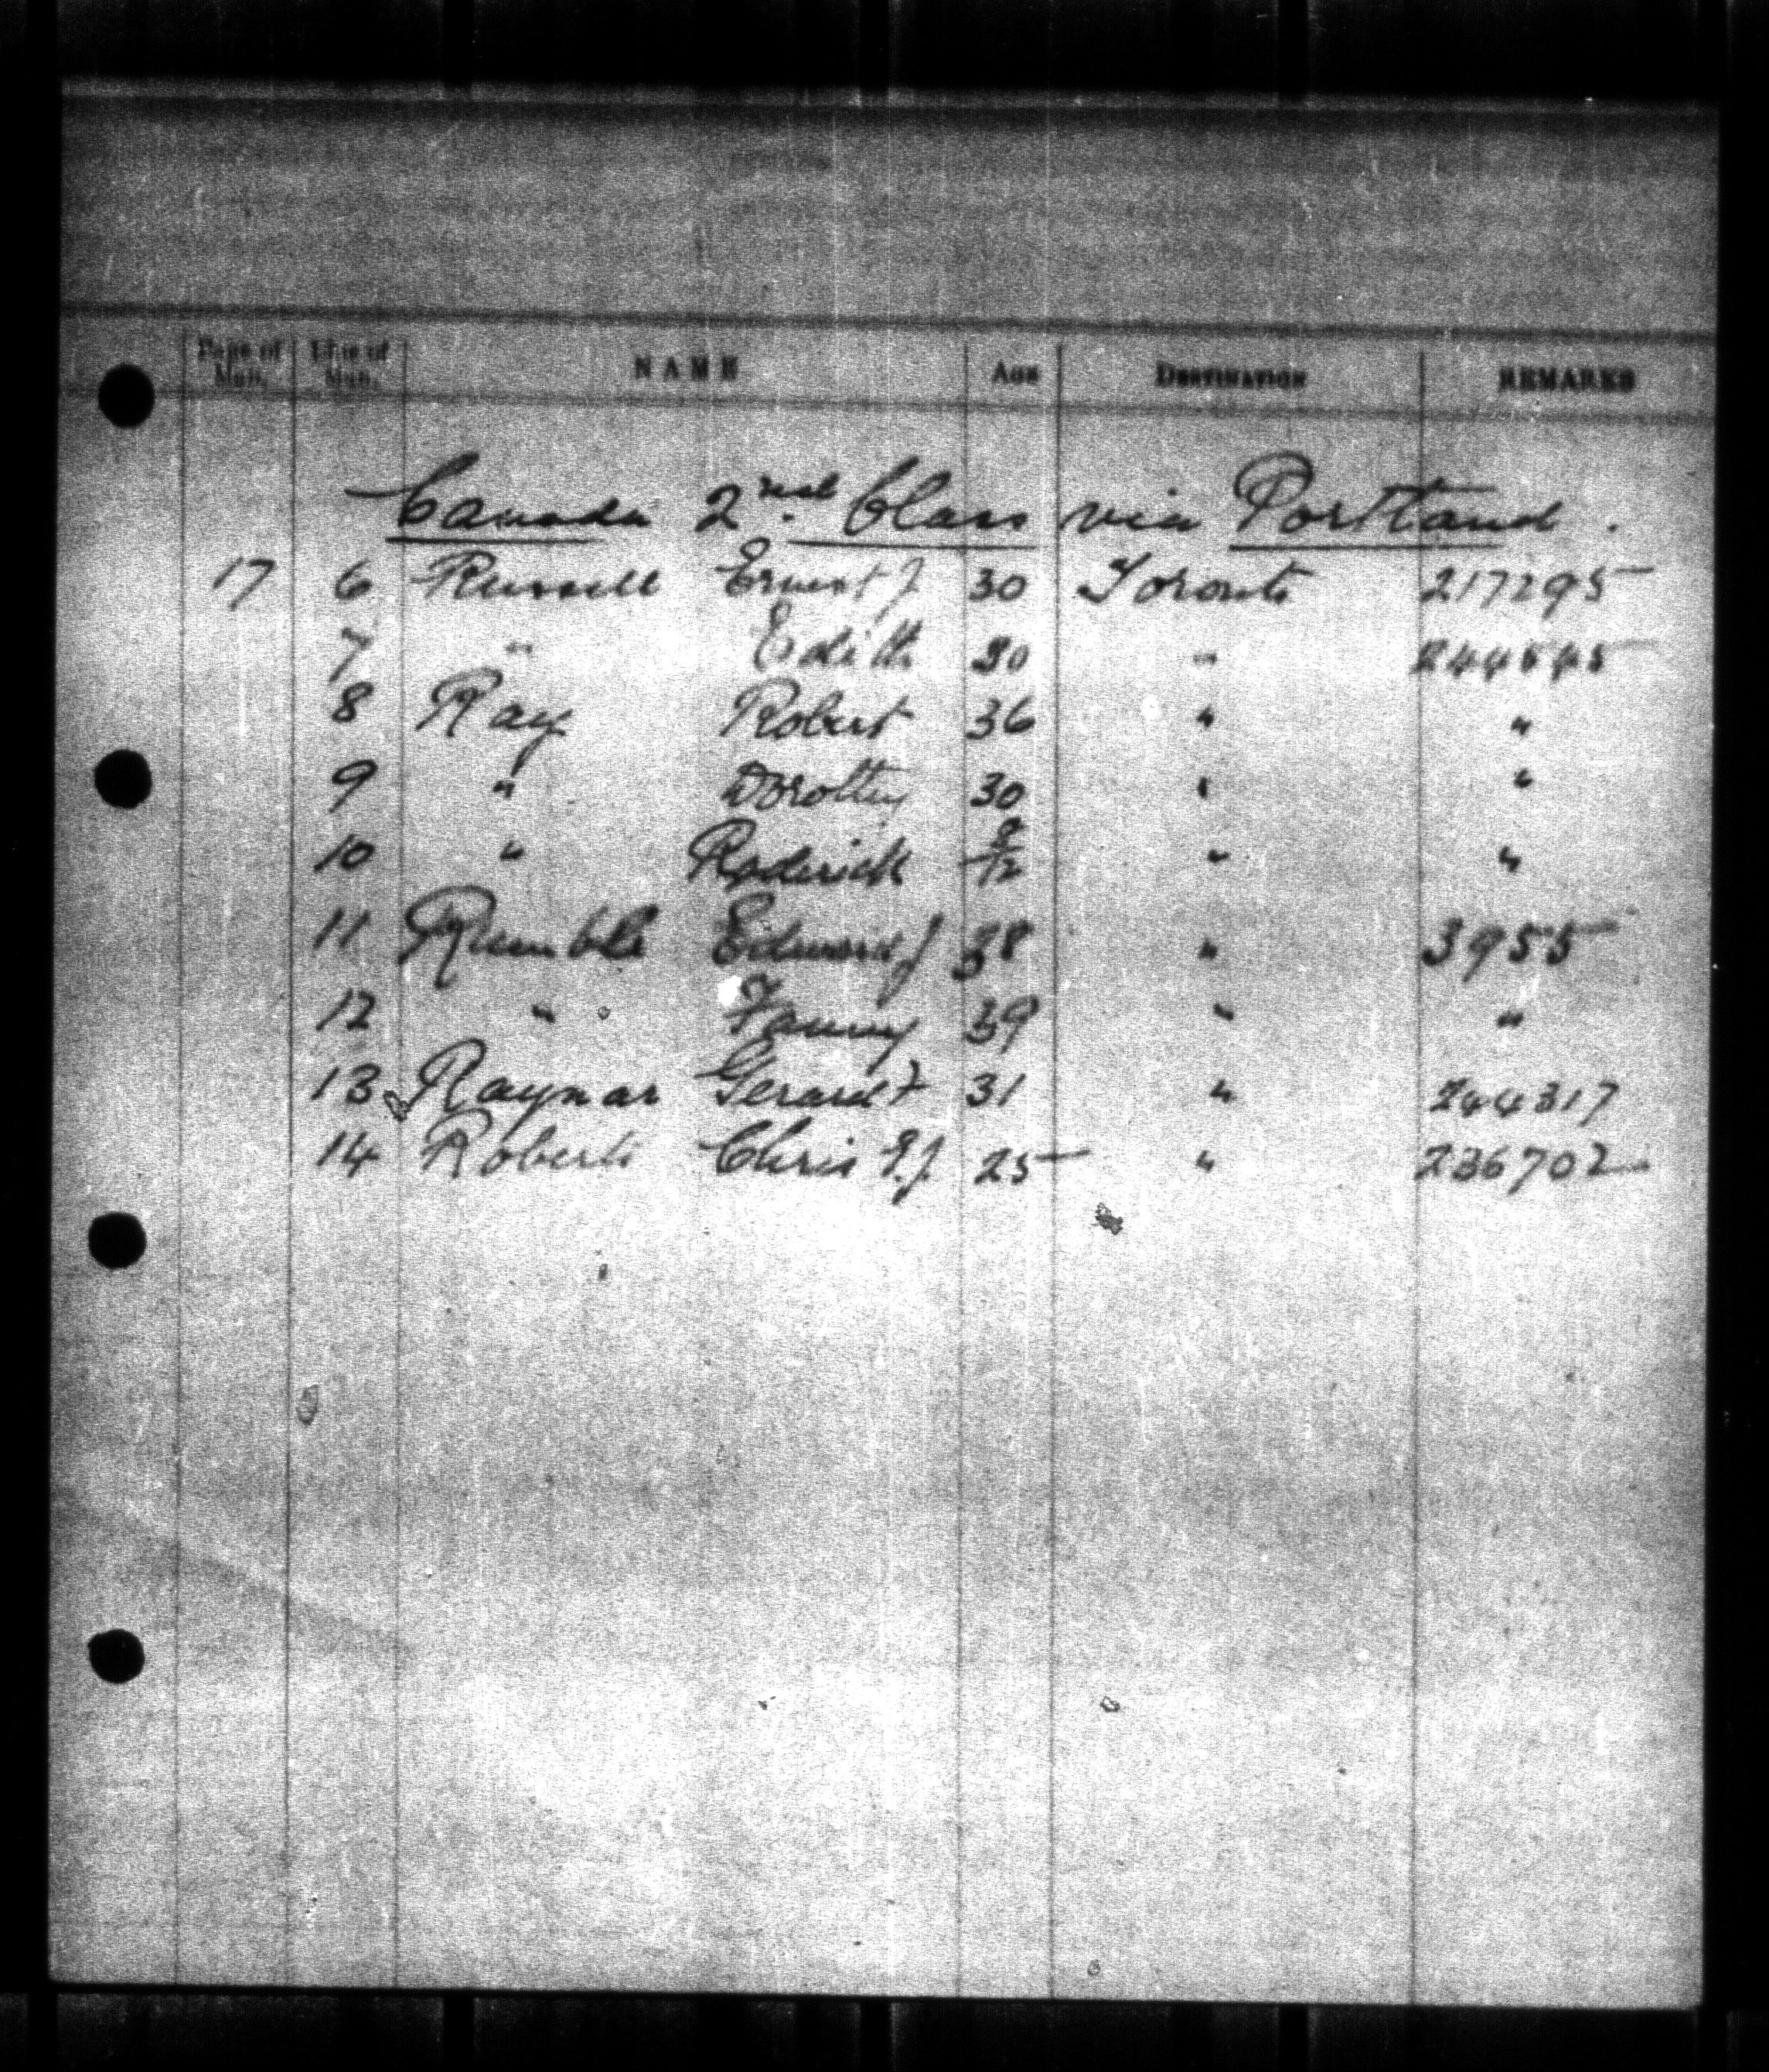 Page of Man. Line of Man. NAME AGE DESTINATION REMARKS
Canada 2nd. Class via Portland.
17 6 Russell Ernest J 30 Toronto 217295
7 " Edith 30 " 244545
8 Ray Robert 36 " "
9 " Dorothy 30 " "
10 " Roderick 8/12 " "
11 Rumble Edward J 38 " 3955
12 " Fanny 39 " "
13 Raynar Gerard 31 " 244317
14 Roberts Chris 25 " 236702